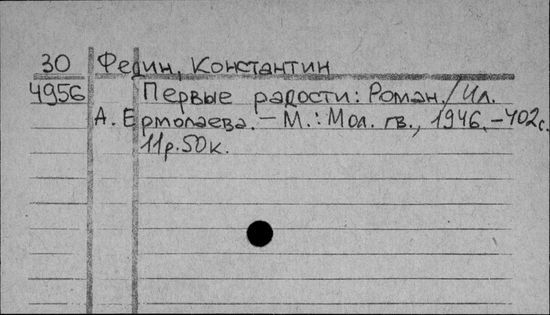 30 Федин, Константин
4956 Первые радости: Роман./Ил.
А. Ермолаева. – М.: Мол. гв., 1946. – 402 с.
11р. 50к.